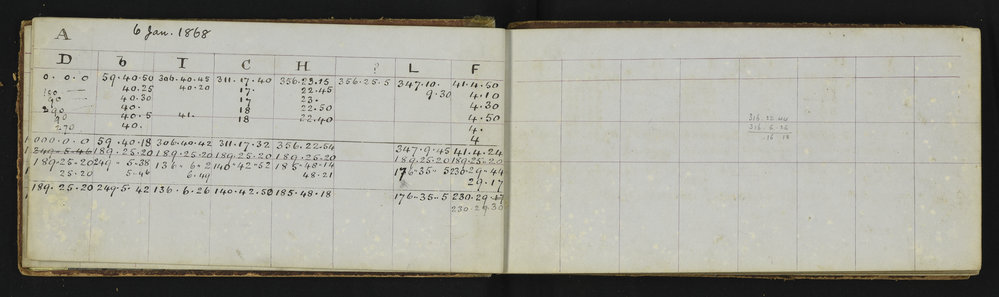 A 6 Jan. 1868
D b I C H L F
0. 0. 0 59.40.50 306.40.45 311.17.40 356.23.15 356.25.5 347.10. 41.4.50
40.25 40.20 17. 22.45 9.30 4.10
90 — 40.30 17 23. 4.30
40. 18 22.50
90 40.5 41. 18 22.40 4.50
270 40. 4.
4
000.0.0 59.40.18 306.40.42 311.17.32 356.22.54 347.9.45 41.4.24
249.5.46 189.25.20 189.25.20 189.25.20 189.25.20 189.25.20 189.25.20
189.25.20 249.5.38 136.6.2 140.42.52 185.48.14 176.35.5 230.29.44
25.20 5.46 6.49 48.21 29.17
189.25.20 249.5.42 136.6.26 140.42.50 185.48.18 176.35.5 230.29.49
230.29.30
316.22.44
316.6.26
16.18